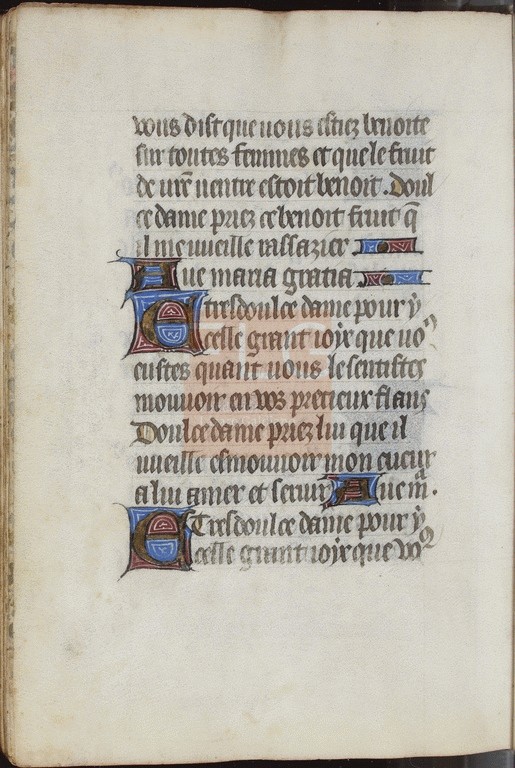 vous dist que vous estiez benoite
sur toutes femmes et que le fruit
de vr̄e ventre estoit benoit. Doul
ce dame priez ce benoit fruit q̄
il me vueille rassazier
Aue maria gratia
E tresdoulce dame pour y
celle grant ioye que vo⁹
eustes quant vous le sentistes
mouuoir en vos precieux flans
Doulce dame priez lui que il
vueille esmouuoir mon cueur
a lui amer et seruir Aue m̄a.
E Tresdoulce dame pour y
celle grant ioye que vo⁹